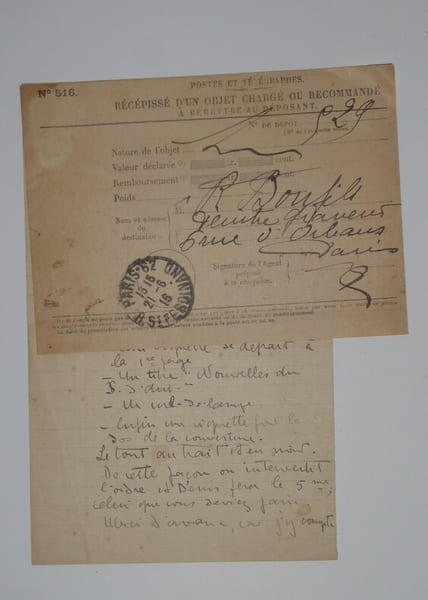 POSTES ET TÉLÉGRAPHES.
N° 516.
RÉCÉPISSÉ D'UN OBJET CHARGÉ OU RECOMMANDÉ
À REMETTRE AU DÉPOSANT.
N° DE DÉPÔT 529
Nature de l'objet
Valeur déclarée fr. cent.
Remboursement fr. cent.
Poids
Nom et adresse du destinataire M. R. Bonfils
Peintre Graveur
Paris
Signature de l'Agent préposé à la réception.
PARIS-82
R. St FERDINAND
de départ à
la 1re page
- Un titre "Nouvelles du
- Un cul-de-lampe
- Enfin un vignette pour le
dos de la couverture.
Le tout au trait et en noir.
De cette façon on intervertit
l'ordre et Denis fera le 5me,
celui que vous deviez faire
Merci d'avance, car j'y compte